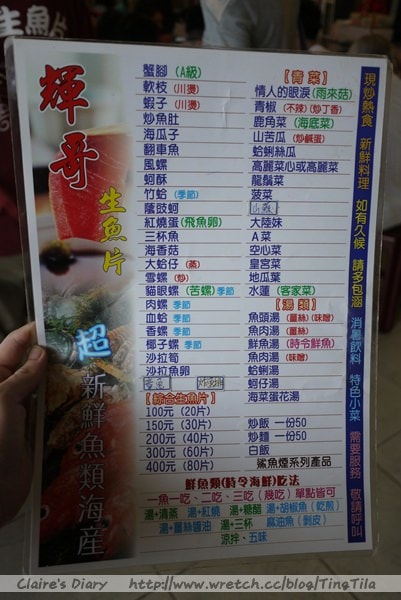 輝哥
生魚片
超
新鮮魚類海産
蟹腳 (A級)
軟枝 (川燙)
蝦子 (川燙)
炒魚肚
海瓜子
翻車魚
風螺
蚵酥
竹蛤 (季節)
蔭豉蚵
紅燒蛋(飛魚卵)
三杯魚
海香菇
大蛤仔 (蒸)
雪螺 (炒)
貓眼螺 (苦螺) 季節
肉螺 季節
血蛤 季節
香螺 季節
椰子螺 季節
沙拉筍
沙拉魚卵
[綜合生魚片]
100元 (20片)
150元 (30片)
200元 (40片)
300元 (60片)
400元 (80片)
[青菜]
情人的眼淚(雨來菇)
青椒 (不辣) (炒丁香)
鹿角菜 (海底菜)
山苦瓜 (炒鹹蛋)
蛤蜊絲瓜
高麗菜心或高麗菜
龍鬚菜
菠菜
大陸妹
A菜
空心菜
皇宮菜
地瓜葉
水蓮 (客家菜)
[湯類]
魚頭湯 (薑絲) (味噌)
魚肉湯 (薑絲)
鮮魚湯 (時令鮮魚)
魚肉湯 (味噌)
蛤蜊湯
蚵仔湯
海菜蛋花湯
炒飯 一份50
炒麵 一份50
白飯
鯊魚煙系列產品
鮮魚類(時令海鮮)吃法
一魚一吃、二吃、三吃 (幾吃) 單點皆可
湯+清蒸 湯+紅燒 湯+糖醋 湯+胡椒魚 (乾煎)
湯+薑絲醬油 湯+三杯 麻油魚 (剝皮)
涼拌、五味
現炒熱食 新鮮料理 如有久候 請多包涵 消暑飲料 特色小菜 需要服務 敬請呼叫
Claire's Diary http://www.wretch.cc/blog/TingTila